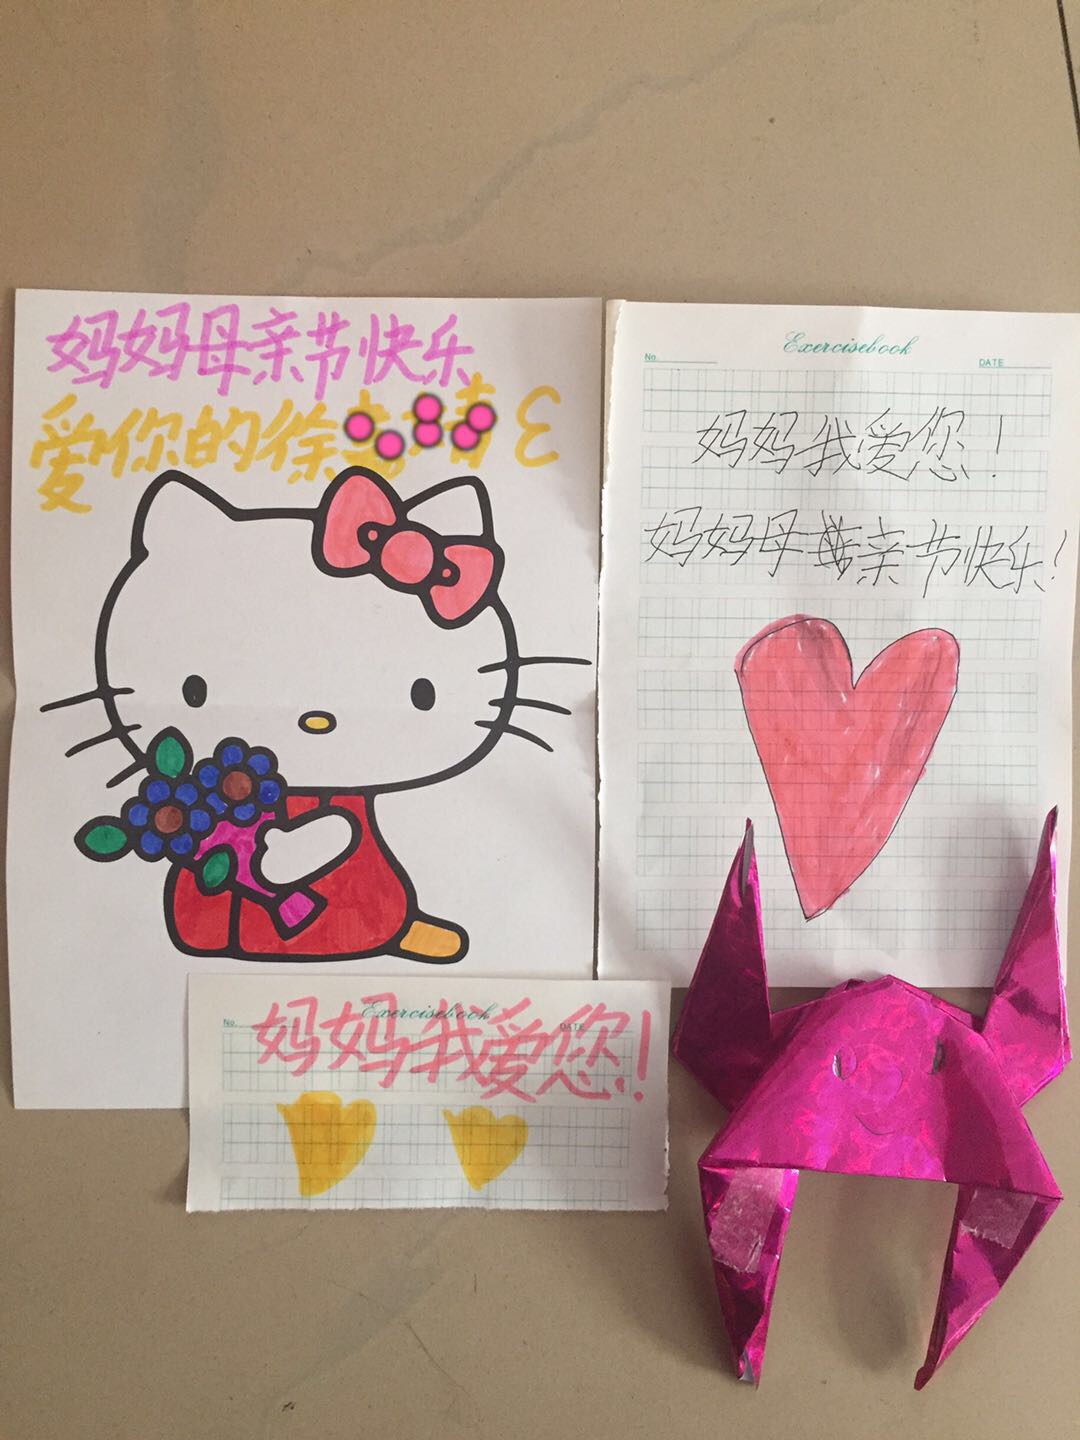 妈妈母亲节快乐
爱你的徐
Exercisebook
No.
DATE
妈妈我爱您！
妈妈母亲节快乐！
Exercisebook
No.
DATE
妈妈我爱您！